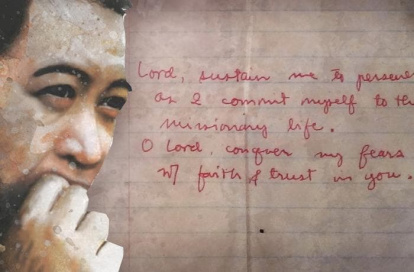 Lord, sustain me to persever
as I commit myself to th
missionary life.
O Lord, conquer my fears
w/ faith & trust in you.